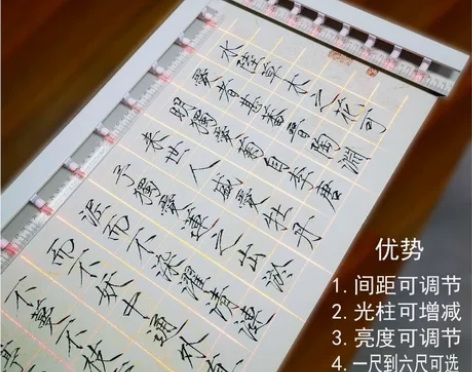 水陸草木之花可
愛者甚蕃晉陶淵
明獨愛菊自李唐
来世人盛愛牡丹
予獨愛蓮之出淤
泥而不染濯清漣
而不妖中通外
不蔓不枝
亭
优势
1. 间距可调节
2. 光柱可增减
3. 亮度可调节
4. 一尺到六尺可选